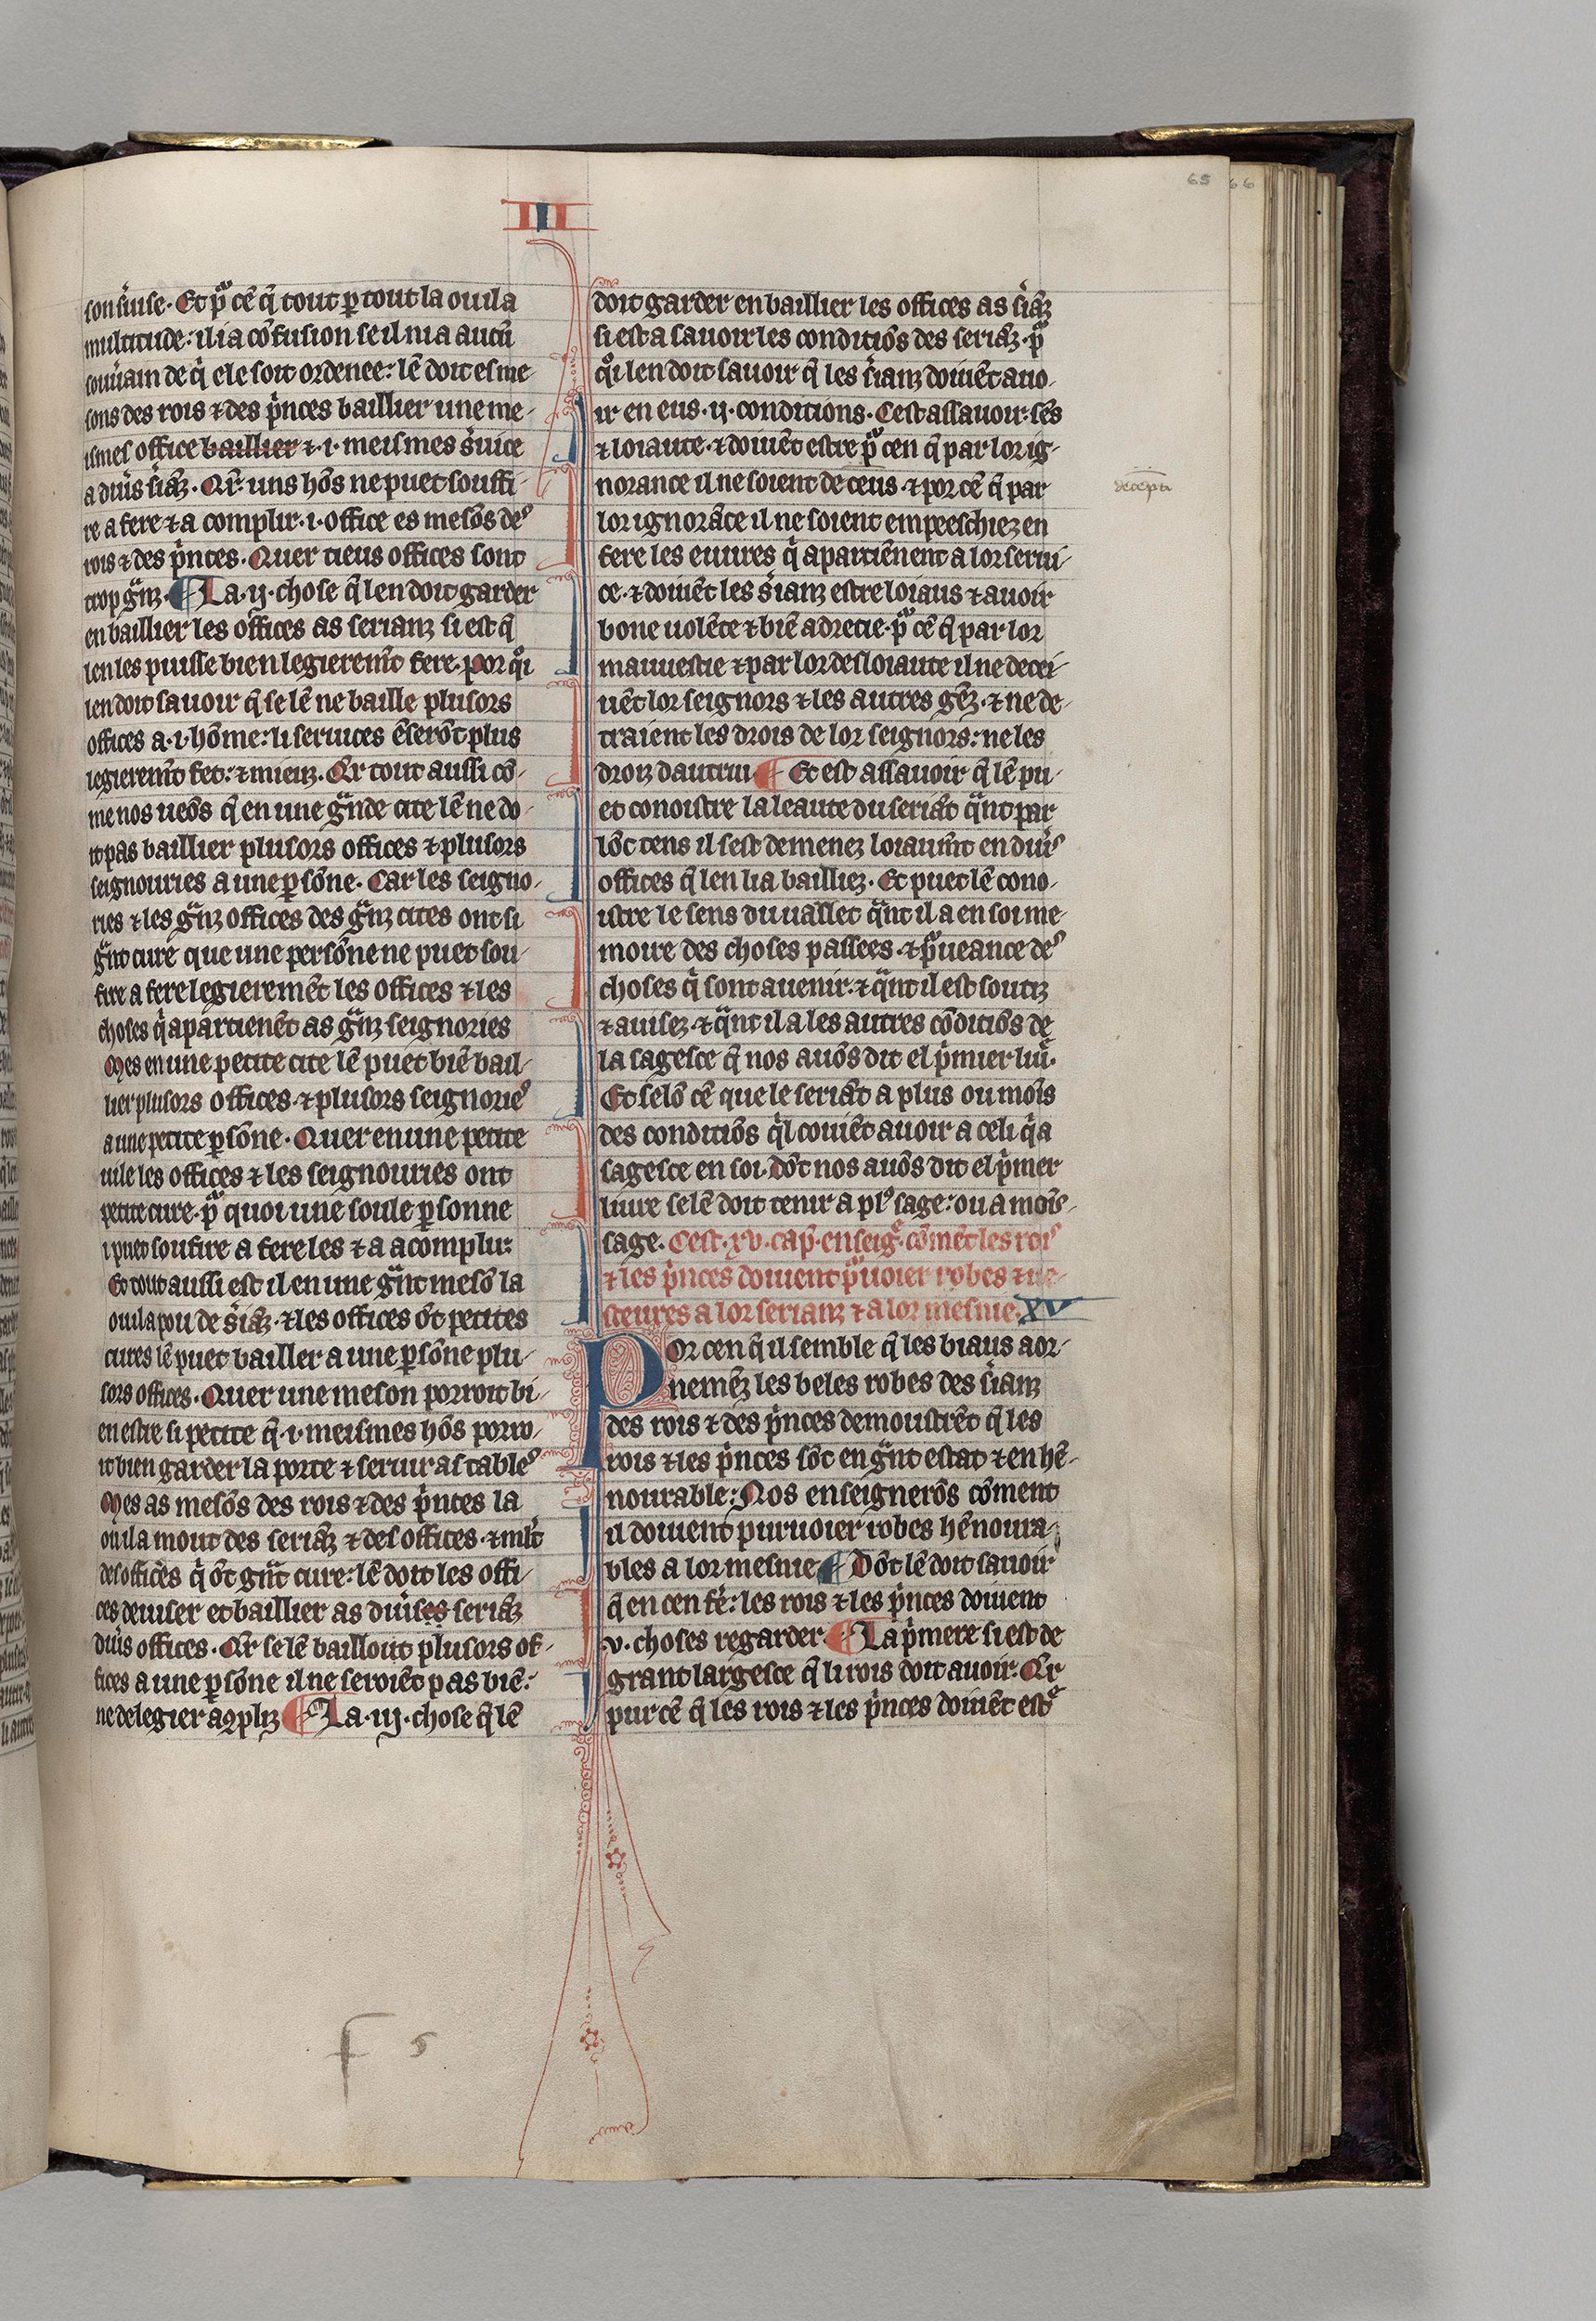 65 66
III
son s̃uise. Et pͣ cẽ q̃ tout ꝑ tout la ou il a
multitude: il i a cõfusion se il ni a aucũ
souũain de q̃ ele soit ordenee: lẽ doit es me-
sons des rois ⁊ des p̃nces baillier une me-
ismes office baillier ⁊ .i. meismes s̃uice
a diũs s̃iãz. Q̃r uns hõs ne puet souffi-
re a fere ⁊ a complir .i. office es mesõs des
rois ⁊ des p̃nces. Quer tieus offices sont
trop gͣnz. ¶ La .ij. chose q̃ len doit garder
en baillier les offices as serianz si est q̃
len les puisse bien legieremt̃ fere. por qͦi
len doit savoir q̃ se lẽ ne baille plusors
offices a .i. hõme: li seruices ẽ serõt plus
legieremt̃ fet: ⁊ mienz. Q̃r tout aussi cõ-
me nos ueõs q̃ en une gͣnde cite lẽ ne do-
it pas baillier plusors offices ⁊ plusors
seignouries a une ꝑsõne. Car les seigno-
ries ⁊ les gͣnz offices des gͣnz cites ont si
gͣnt cure que une persõne ne puet sou-
fire a fere legieremẽt les offices ⁊ les
choses q̃ apartienẽt as gͣnz seignories
Mes en une petite cite lẽ puet biẽ bail-
lier plusors offices ⁊ plusors seignories
a une petite ꝑsõne. Quer en une petite
uile les offices ⁊ les seignouries ont
petite cure. pͣ quoi une soule ꝑsonne
i puet soufire a fere les ⁊ a acomplir:
Et tout aussi est il en une gͣnt mesõ la
ou il a pou de s̃iãz. ⁊ les offices õt petites
cures lẽ puet bailler a une ꝑsõne plu-
sors offices. Quer une meson porroit bi-
en estre si petite q̃ .i. meismes hõs porro-
it bien garder la porte ⁊ seruir as tables
Mes as mesõs des rois ⁊ des p̃nces la
ou il a mout des seriãz ⁊ des offices. ⁊ mlt̃
des offices q̃ õt gͣnt cure: lẽ doit les offi-
ces deuiser et baillier as diũses seriãz
diũs offices. Q̃r se lẽ bailloit plusors of-
fices a une ꝑsõne il ne seroiẽt pas biẽ:
ne de legier aꝯpliz ¶ La .iij. chose q̃ lẽ
doit garder en baillier les offices as s̃iãz
si est a sauoir les conditiõs des seriãz. pͣ
qͦi len doit sauoir q̃ les s̃ianz doiuẽt auo-
ir en eus .ij. conditions. Cest assauoir: sẽs
⁊ loiaute. ⁊ doiuẽt estre pͣ cen q̃ par lor ig-
norance il ne soient deceus. ⁊ por cẽ q̃ par
decepti
lor ignorãce il ne soient empeeschiez en
fere les euures q̃ apartiẽnent a lor serui-
ce. ⁊ doiuẽt les s̃ianz estre loiaus ⁊ auoir
bone uolẽte ⁊ biẽ adrecie. pͣ cẽ q̃ par lor
mauuestie ⁊ par lor desloiaute il ne decei-
uẽt lor seignors ⁊ les autres gẽz. ⁊ ne de-
traient les drois de lor seignors: ne les
droiz dautrui ¶ Et est assauoir q̃ lẽ pu-
et conoistre la leaute du seriãt qͣnt par
lõc tens il sest demenez loiaumt̃ en diũs
offices q̃ len li a bailliez. Et puet lẽ cono-
istre le sens du uallet qͣnt il a en soi me-
moire des choses passees. ⁊ pͣueance des
choses q̃ sont auenir. ⁊ qͣnt il est soutiz
⁊ auisez. ⁊ qͣnt il a les autres cõditiõs de
la sagesce q̃ nos auõs dit el p̃mier liũ.
Et selõ cẽ que le seriãt a plus ou moĩs
des conditiõs q̃l couiẽt auoir a celi q̃ a
sagesce en soi. dõt nos auõs dit el p̃mer
liure se lẽ doit tenir a plꝰ sage: ou a moĩs
sage. Cest .xv. cap̃. enseig̃. cõmẽt les rois
⁊ les p̃nces doiuent pͣuoier robes ⁊ ue-
steures a lor serianz ⁊ a lor mesnie. XV
Por cen q̃ il semble q̃ les biaus aor-
nemẽz les beles robes des s̃ianz
des rois ⁊ des p̃nces demoustrẽt q̃ les
rois ⁊ les p̃nces sõt en gͣnt estat ⁊ en hẽ-
nourable: Nos enseignerõs cõment
il doiuent puruoier robes hẽnoura-
bles a lor mesnie ¶ Dõt lẽ doit sauoir
q̃ en cen fẽ: les rois ⁊ les p̃nces doiuent
.v. choses regarder. ¶ La p̃mere si est de
grant largesce q̃ li rois doit auoir. Q̃r
pur cẽ q̃ les rois ⁊ les p̃nces doiuẽt estͤ
f 5